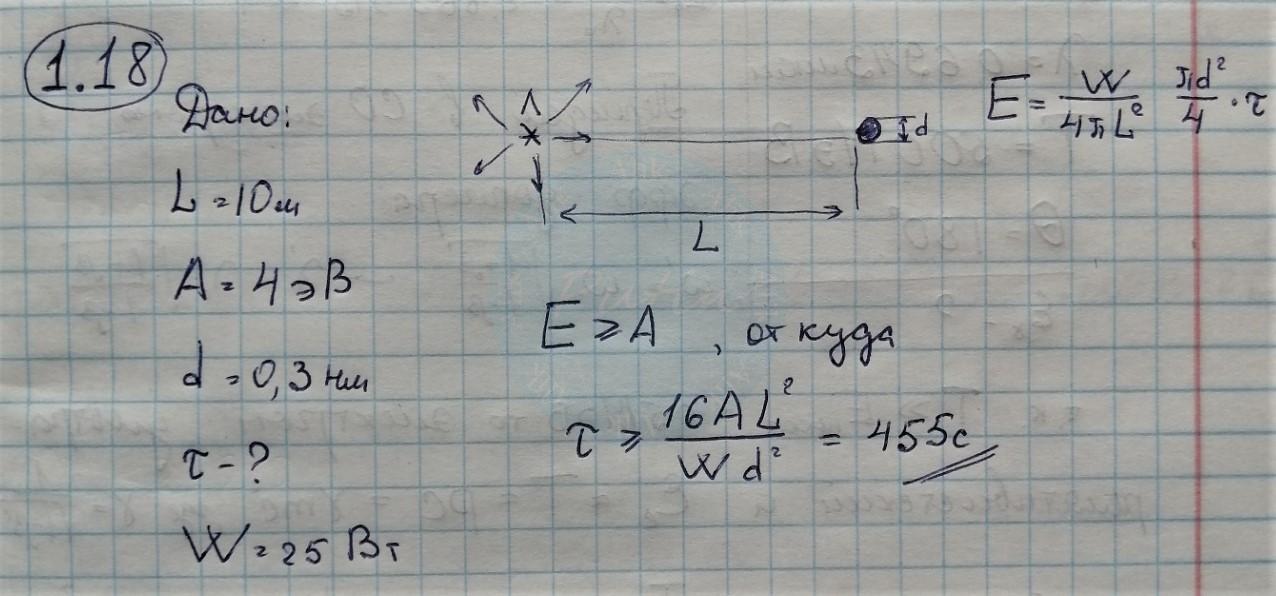 1.18
Дано:
L = 10 м
A = 4 эВ
d = 0,3 нм
τ - ?
W = 25 Вт
Λ
d
L
E = W/(4πL²) πd²/4 · τ
E ⩾ A , откуда
τ ⩾ 16AL²/(Wd²) = 455с